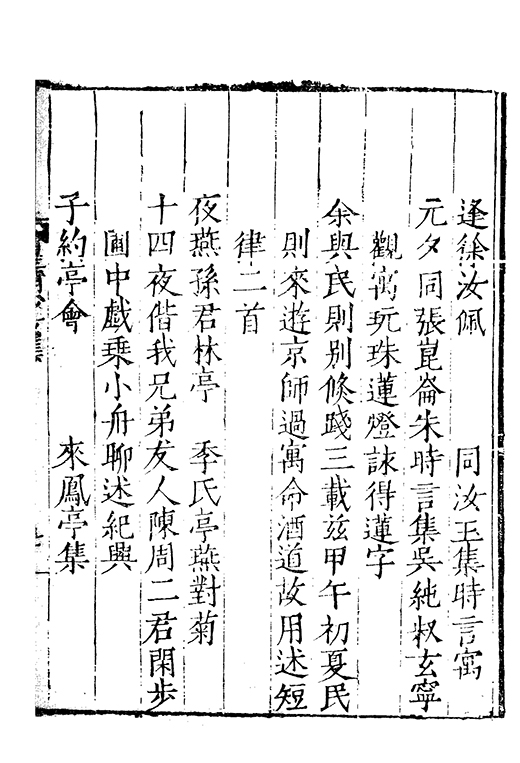 逢徐汝佩 同汝玉集時言寓
元夕同張崑崙朱時言集吳純叔玄寧
觀寓玩珠蓮燈詠得蓮字
余與民則別倏踐三載茲甲午初夏民
則來遊京師過寓命酒道故用述短
律二首
夜燕孫君林亭 季氏亭燕對菊
十四夜偕我兄弟友人陳周二君閑步
圃中戲乗小舟聊述紀興
子約亭會 來鳳亭集